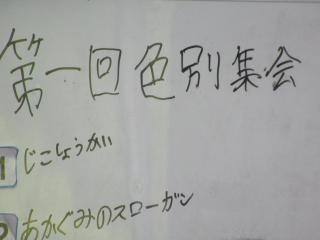 第一回色別集会
1 じこしょうかい
2 あかぐみのスローガン